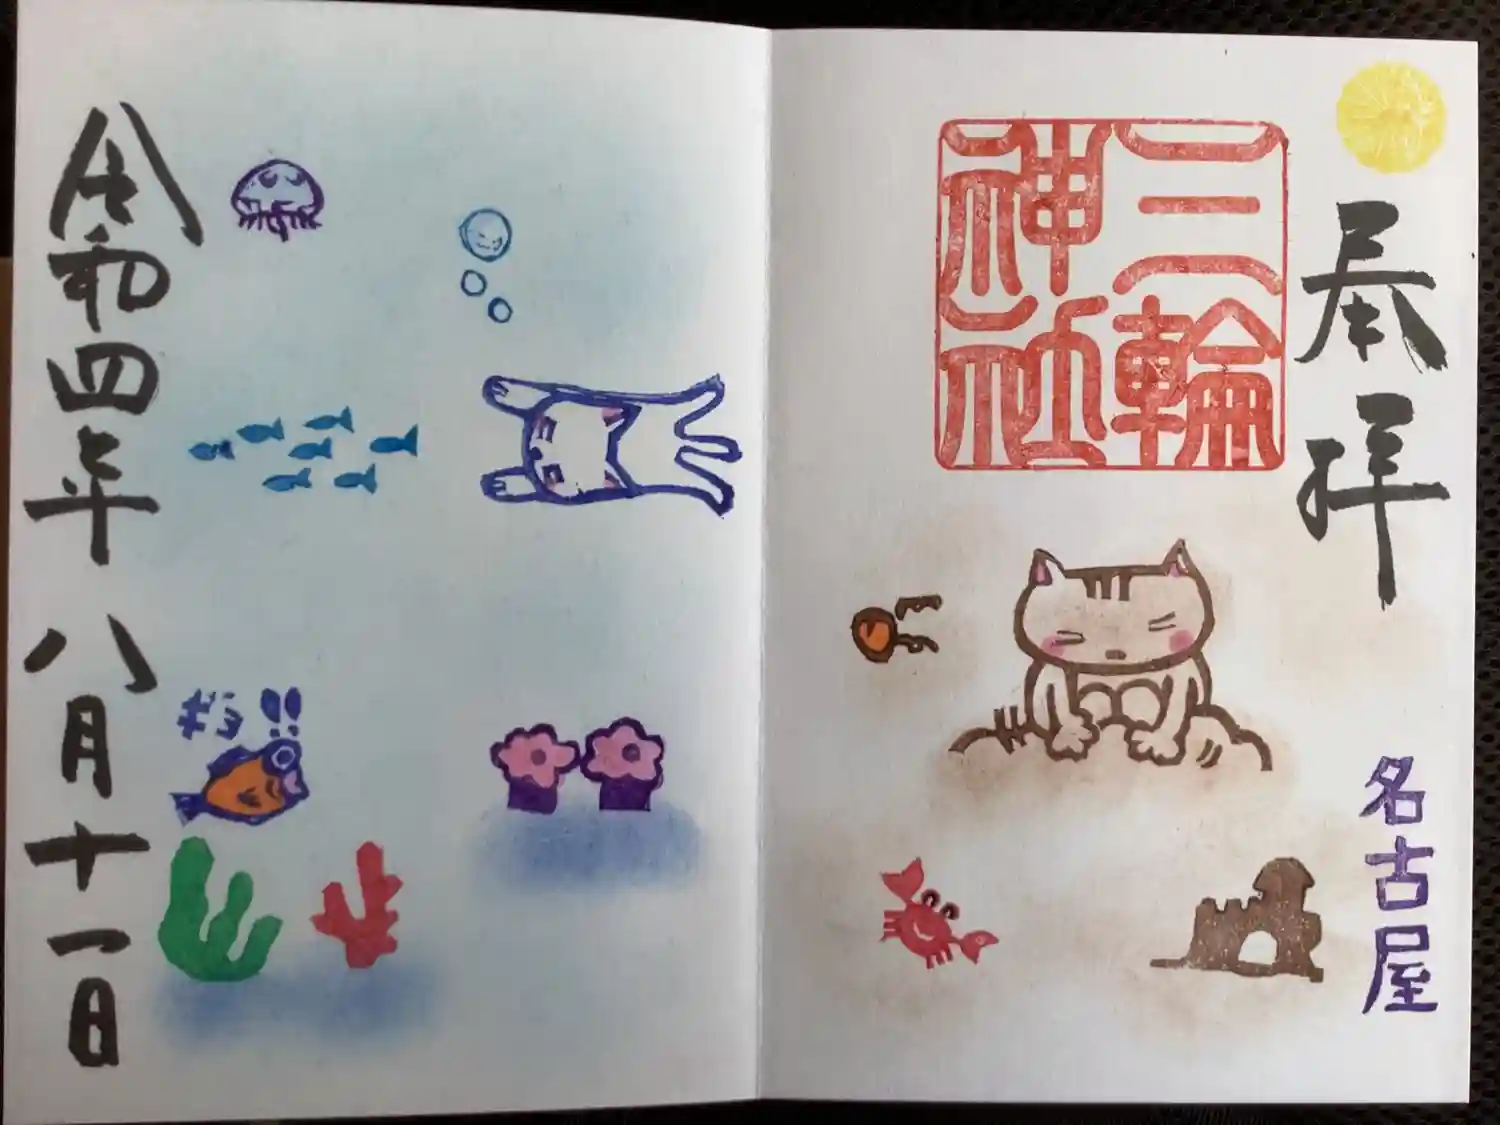 奉拝
三輪
神社
名古屋
令和四年八月十一日
ギョ!!